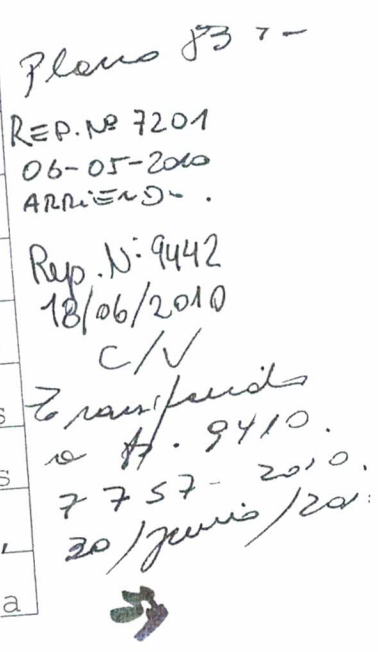 Plano 83
REP. Nº 7201
06-05-2010
ARRIENDO.
Rep. Nº 9442
18/06/2010
C/V
Transferido
a fs. 9410.
7757- 2010.
30/junio/201
s
s
,
a